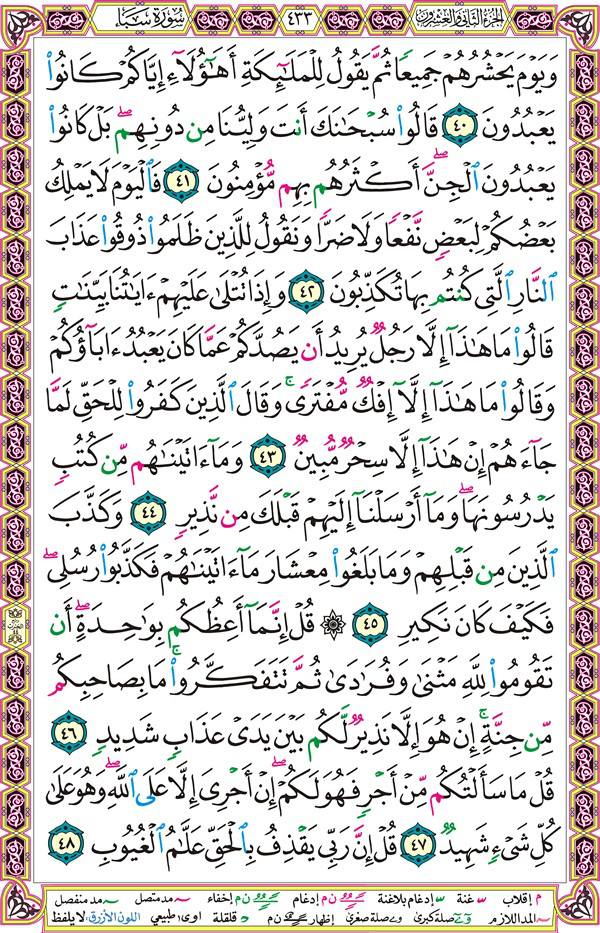 الجزء الثاني والعشرون
٤٣٣
سورة سبإ
وَيَوْمَ يَحْشُرُهُمْ جَمِيعًا ثُمَّ يَقُولُ لِلْمَلَٰٓئِكَةِ أَهَٰٓؤُلَآءِ إِيَّاكُمْ كَانُوا۟
يَعْبُدُونَ ٤٠ قَالُوا۟ سُبْحَٰنَكَ أَنتَ وَلِيُّنَا مِن دُونِهِم ۖ بَلْ كَانُوا۟
يَعْبُدُونَ ٱلْجِنَّ ۖ أَكْثَرُهُم بِهِم مُّؤْمِنُونَ ٤١ فَٱلْيَوْمَ لَا يَمْلِكُ
بَعْضُكُمْ لِبَعْضٍ نَّفْعًا وَلَا ضَرًّا وَنَقُولُ لِلَّذِينَ ظَلَمُوا۟ ذُوقُوا۟ عَذَابَ
ٱلنَّارِ ٱلَّتِى كُنتُم بِهَا تُكَذِّبُونَ ٤٢ وَإِذَا تُتْلَىٰ عَلَيْهِمْ ءَايَٰتُنَا بَيِّنَٰتٍ
قَالُوا۟ مَا هَٰذَآ إِلَّا رَجُلٌ يُرِيدُ أَن يَصُدَّكُمْ عَمَّا كَانَ يَعْبُدُ ءَابَآؤُكُمْ
وَقَالُوا۟ مَا هَٰذَآ إِلَّآ إِفْكٌ مُّفْتَرًى ۚ وَقَالَ ٱلَّذِينَ كَفَرُوا۟ لِلْحَقِّ لَمَّا
جَآءَهُمْ إِنْ هَٰذَآ إِلَّا سِحْرٌ مُّبِينٌ ٤٣ وَمَآ ءَاتَيْنَٰهُم مِّن كُتُبٍ
يَدْرُسُونَهَا ۖ وَمَآ أَرْسَلْنَآ إِلَيْهِمْ قَبْلَكَ مِن نَّذِيرٍ ٤٤ وَكَذَّبَ
ٱلَّذِينَ مِن قَبْلِهِمْ وَمَا بَلَغُوا۟ مِعْشَارَ مَآ ءَاتَيْنَٰهُمْ فَكَذَّبُوا۟ رُسُلِى ۖ
فَكَيْفَ كَانَ نَكِيرِ ٤٥ ۞ قُلْ إِنَّمَآ أَعِظُكُم بِوَٰحِدَةٍ ۖ أَن
تَقُومُوا۟ لِلَّهِ مَثْنَىٰ وَفُرَٰدَىٰ ثُمَّ تَتَفَكَّرُوا۟ ۚ مَا بِصَاحِبِكُم
مِّن جِنَّةٍ ۚ إِنْ هُوَ إِلَّا نَذِيرٌ لَّكُم بَيْنَ يَدَىْ عَذَابٍ شَدِيدٍ ٤٦
قُلْ مَا سَأَلْتُكُم مِّنْ أَجْرٍ فَهُوَ لَكُمْ ۖ إِنْ أَجْرِىَ إِلَّا عَلَى ٱللَّهِ ۖ وَهُوَ عَلَىٰ
كُلِّ شَىْءٍ شَهِيدٌ ٤٧ قُلْ إِنَّ رَبِّى يَقْذِفُ بِٱلْحَقِّ عَلَّٰمُ ٱلْغُيُوبِ ٤٨
م إقلاب غنة إدغام بلاغنة ن م إدغام ن إخفاء مد متصل مد منفصل
المد اللازم صلة كبرى صلة صغرى إظهار ن م قلقلة اوى طبيعي اللون الأزرق: لا يلفظ